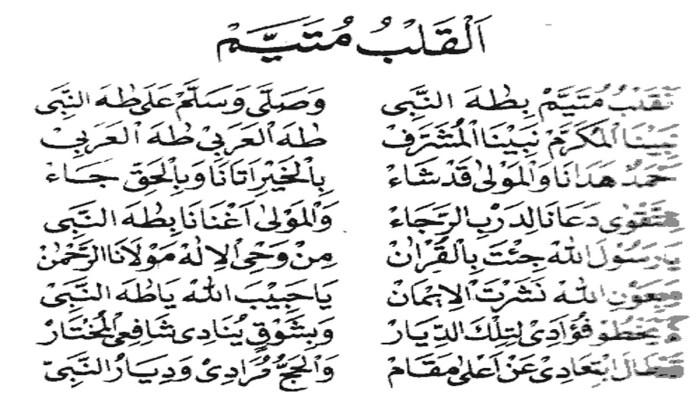 اَلْقَلْبُ مُتَيَّمْ
مُتَيَّمْ بِطٰهَ النَّبِى وَصَلَّى وَسَلَّمْ عَلَى طٰهَ النَّبِى
نَبِيْنَا الْمُكَرَّمْ نَبِيْنَا الْمُشَرَّفْ طٰهَ الْعَرَبِيْ طٰهَ الْعَرَبِيْ
هَدَانَا وَالْمَوْلَى قَدْ شَاءْ بِالْخَيْرِ اَتَانَا وَبِالْحَقِّ جَاءْ
دَعَانَا لِدَرْبِ الرَّجَاءْ وَالْمَوْلَى اَغْنَانَا بِطٰهَ النَّبِى
يَا رَسُوْلَ اللهْ جِئْتَ بِالْقُرْاٰنْ مِنْ وَحْيِ الْاِلٰهْ مَوْلَانَا الرَّحْمٰنْ
اللهْ نَشَرْتَ الْاِيْمَانْ يَا حَبِيْبَ اللهْ يَا طٰهَ النَّبِىْ
فُؤَادِىْ لِتِلْكَ الدِّيَارْ وَبِشَوْقٍ يُنَادِىْ شَافِعِي الْمُخْتَارْ
ابْتِعَادِىْ عَنْ اَعْلَى مَقَامْ وَالْحَجُّ مُرَادِىْ وَدِيَارُ النَّبِىّ